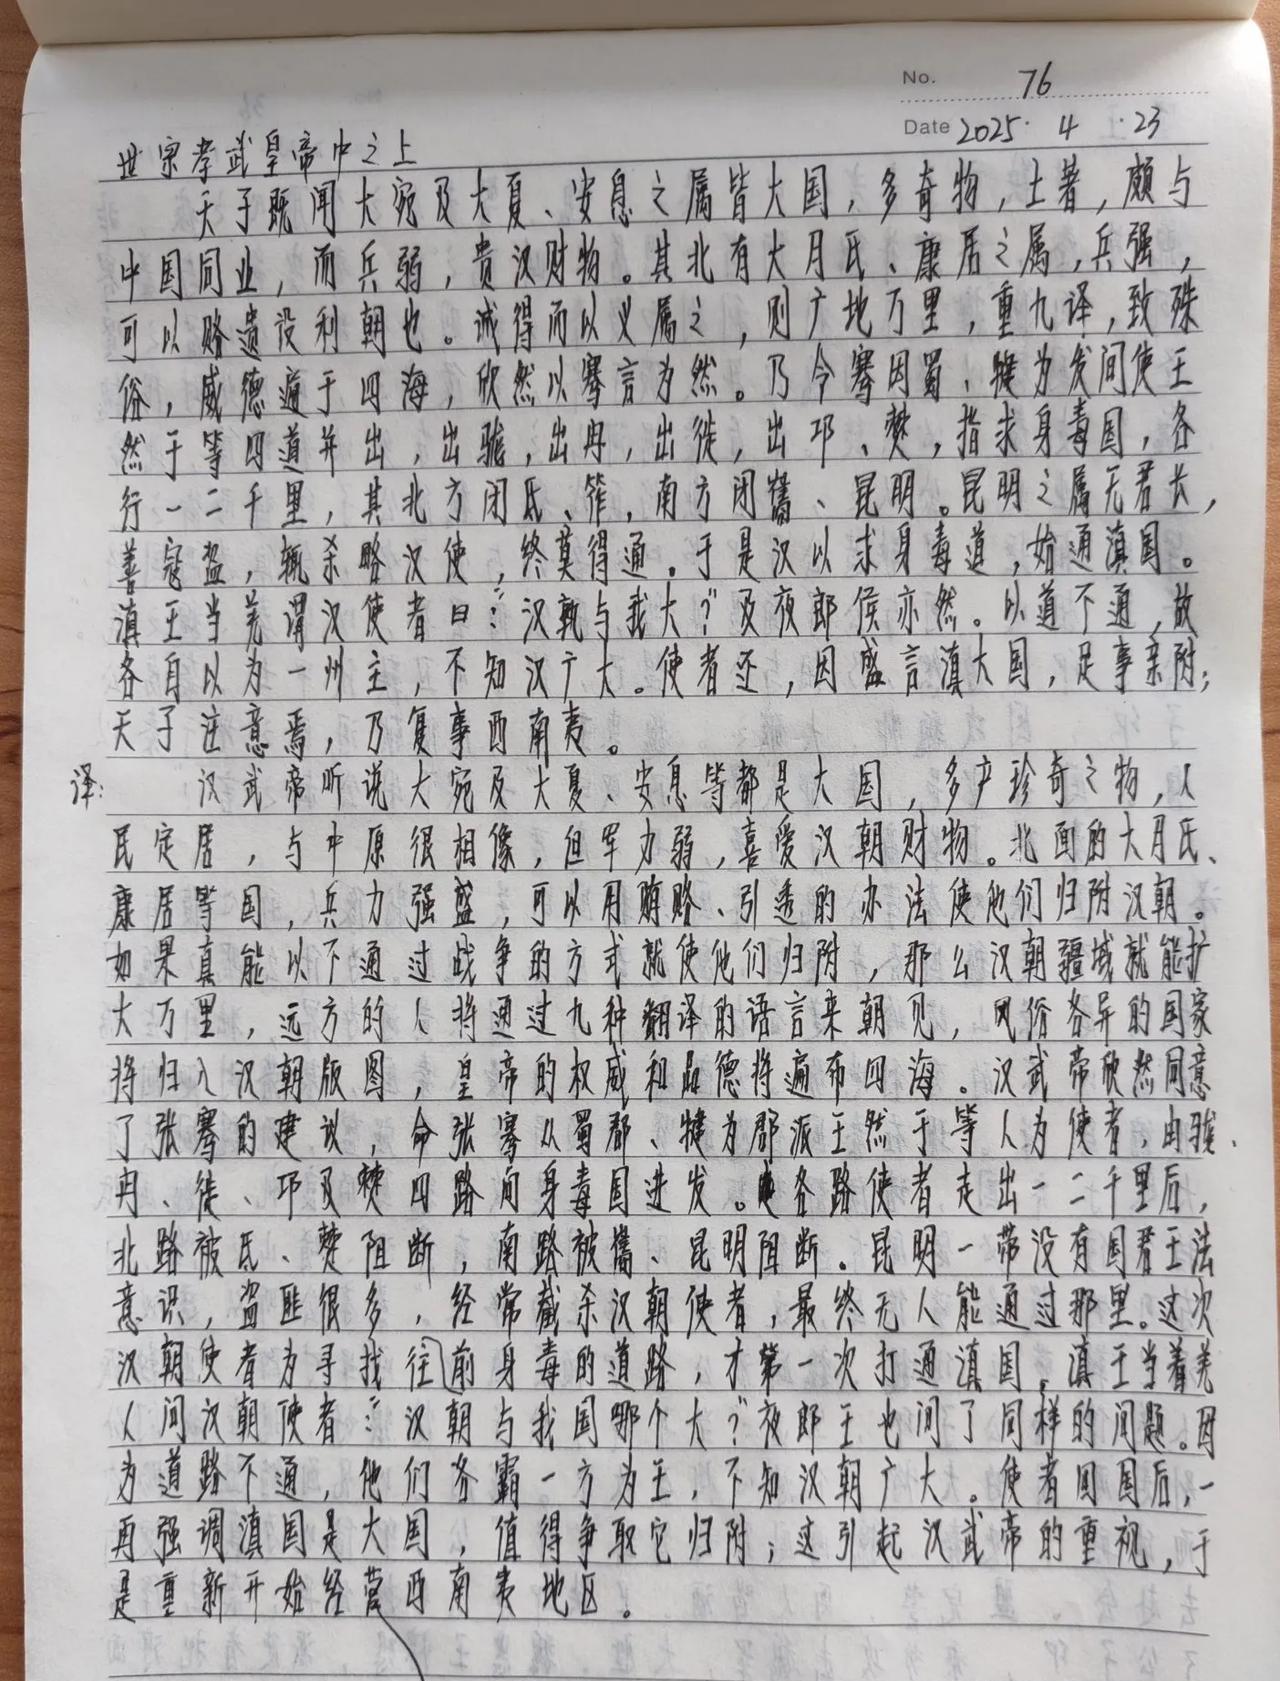 No. 76
Date 2025. 4. 23
世宗孝武皇帝中之上
天子既闻大宛及大夏、安息之属皆大国，多奇物，土著，颇与
中国同业，而兵弱，贵汉财物。其北有大月氏、康居之属，兵强，
可以赂遗设利朝也。诚得而以义属之，则广地万里，重九译，致殊
俗，威德遍于四海，欣然以骞言为然。乃令骞因蜀、犍为发间使王
然于等四道并出，出駹，出冉，出徙，出邛、僰，指求身毒国，各
行一二千里，其北方闭氐、筰，南方闭嶲、昆明。昆明之属无君长，
善寇盗，辄杀略汉使，终莫得通。于是汉以求身毒道，始通滇国。
滇王当羌谓汉使者曰："汉孰与我大？"及夜郎侯亦然。以道不通，故
各自以为一州主，不知汉广大。使者还，因盛言滇大国，足事亲附；
天子注意焉，乃复事西南夷。
译：汉武帝听说大宛及大夏、安息等都是大国，多产珍奇之物，人
民定居，与中原很相像，但军力弱，喜爱汉朝财物。北面的大月氏、
康居等国，兵力强盛，可以用贿赂、引透的办法使他们归附汉朝。
如果真能以不通过战争的方式就使他们归附，那么汉朝疆域就能扩
大万里，远方的人将通过九种翻译的语言来朝见，风俗各异的国家
将归入汉朝版图，皇帝的权威和品德将遍布四海。汉武帝欣然同意
了张骞的建议，命张骞从蜀郡、犍为郡派王然于等人为使者，由駹、
冉、徙、邛及僰四路向身毒国进发。各路使者走出一二千里后，
北路被氐、僰阻断，南路被嶲、昆明阻断。昆明一带没有国君王法
意识，盗匪很多，经常截杀汉朝使者，最终无人能通过那里。这次
汉朝使者为寻找往前身毒的道路，才第一次打通滇国。滇王当着羌
人问汉朝使者："汉朝与我国哪个大？"夜郎王也问了同样的问题。因
为道路不通，他们各霸一方为王，不知汉朝广大。使者回国后，一
再强调滇国是大国，值得争取它归附；这引起汉武帝的重视，于
是重新开始经营西南夷地区。